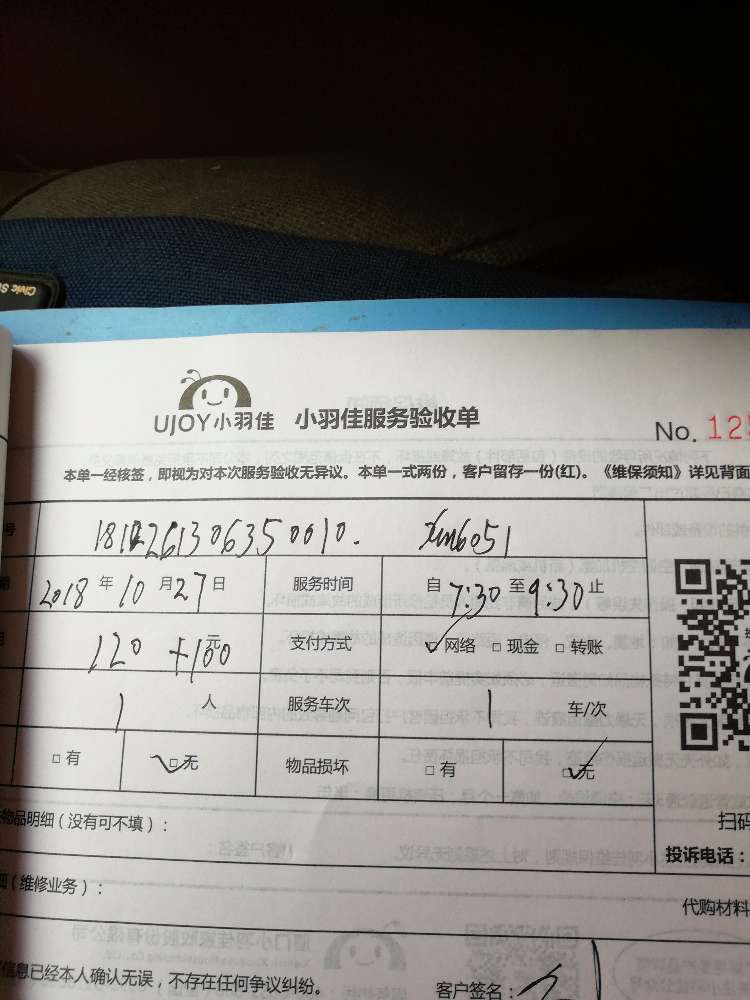 Civic Si
UJOY小羽佳 小羽佳服务验收单
No. 125
本单一经核签，即视为对本次服务验收无异议。本单一式两份，客户留存一份(红)。《维保须知》详见背面
号 xm6051
期 2018 年 10 月 27 日 服务时间 自 7:30 至 9:30 止
120 +100 元 支付方式 网络 现金 转账
1 人 服务车次 1 车/次
有 无 物品损坏 有 无
物品明细（没有可不填）：
扫码
投诉电话：
细（维修业务）：
代购材料
信息已经本人确认无误，不存在任何争议纠纷。
客户签名：